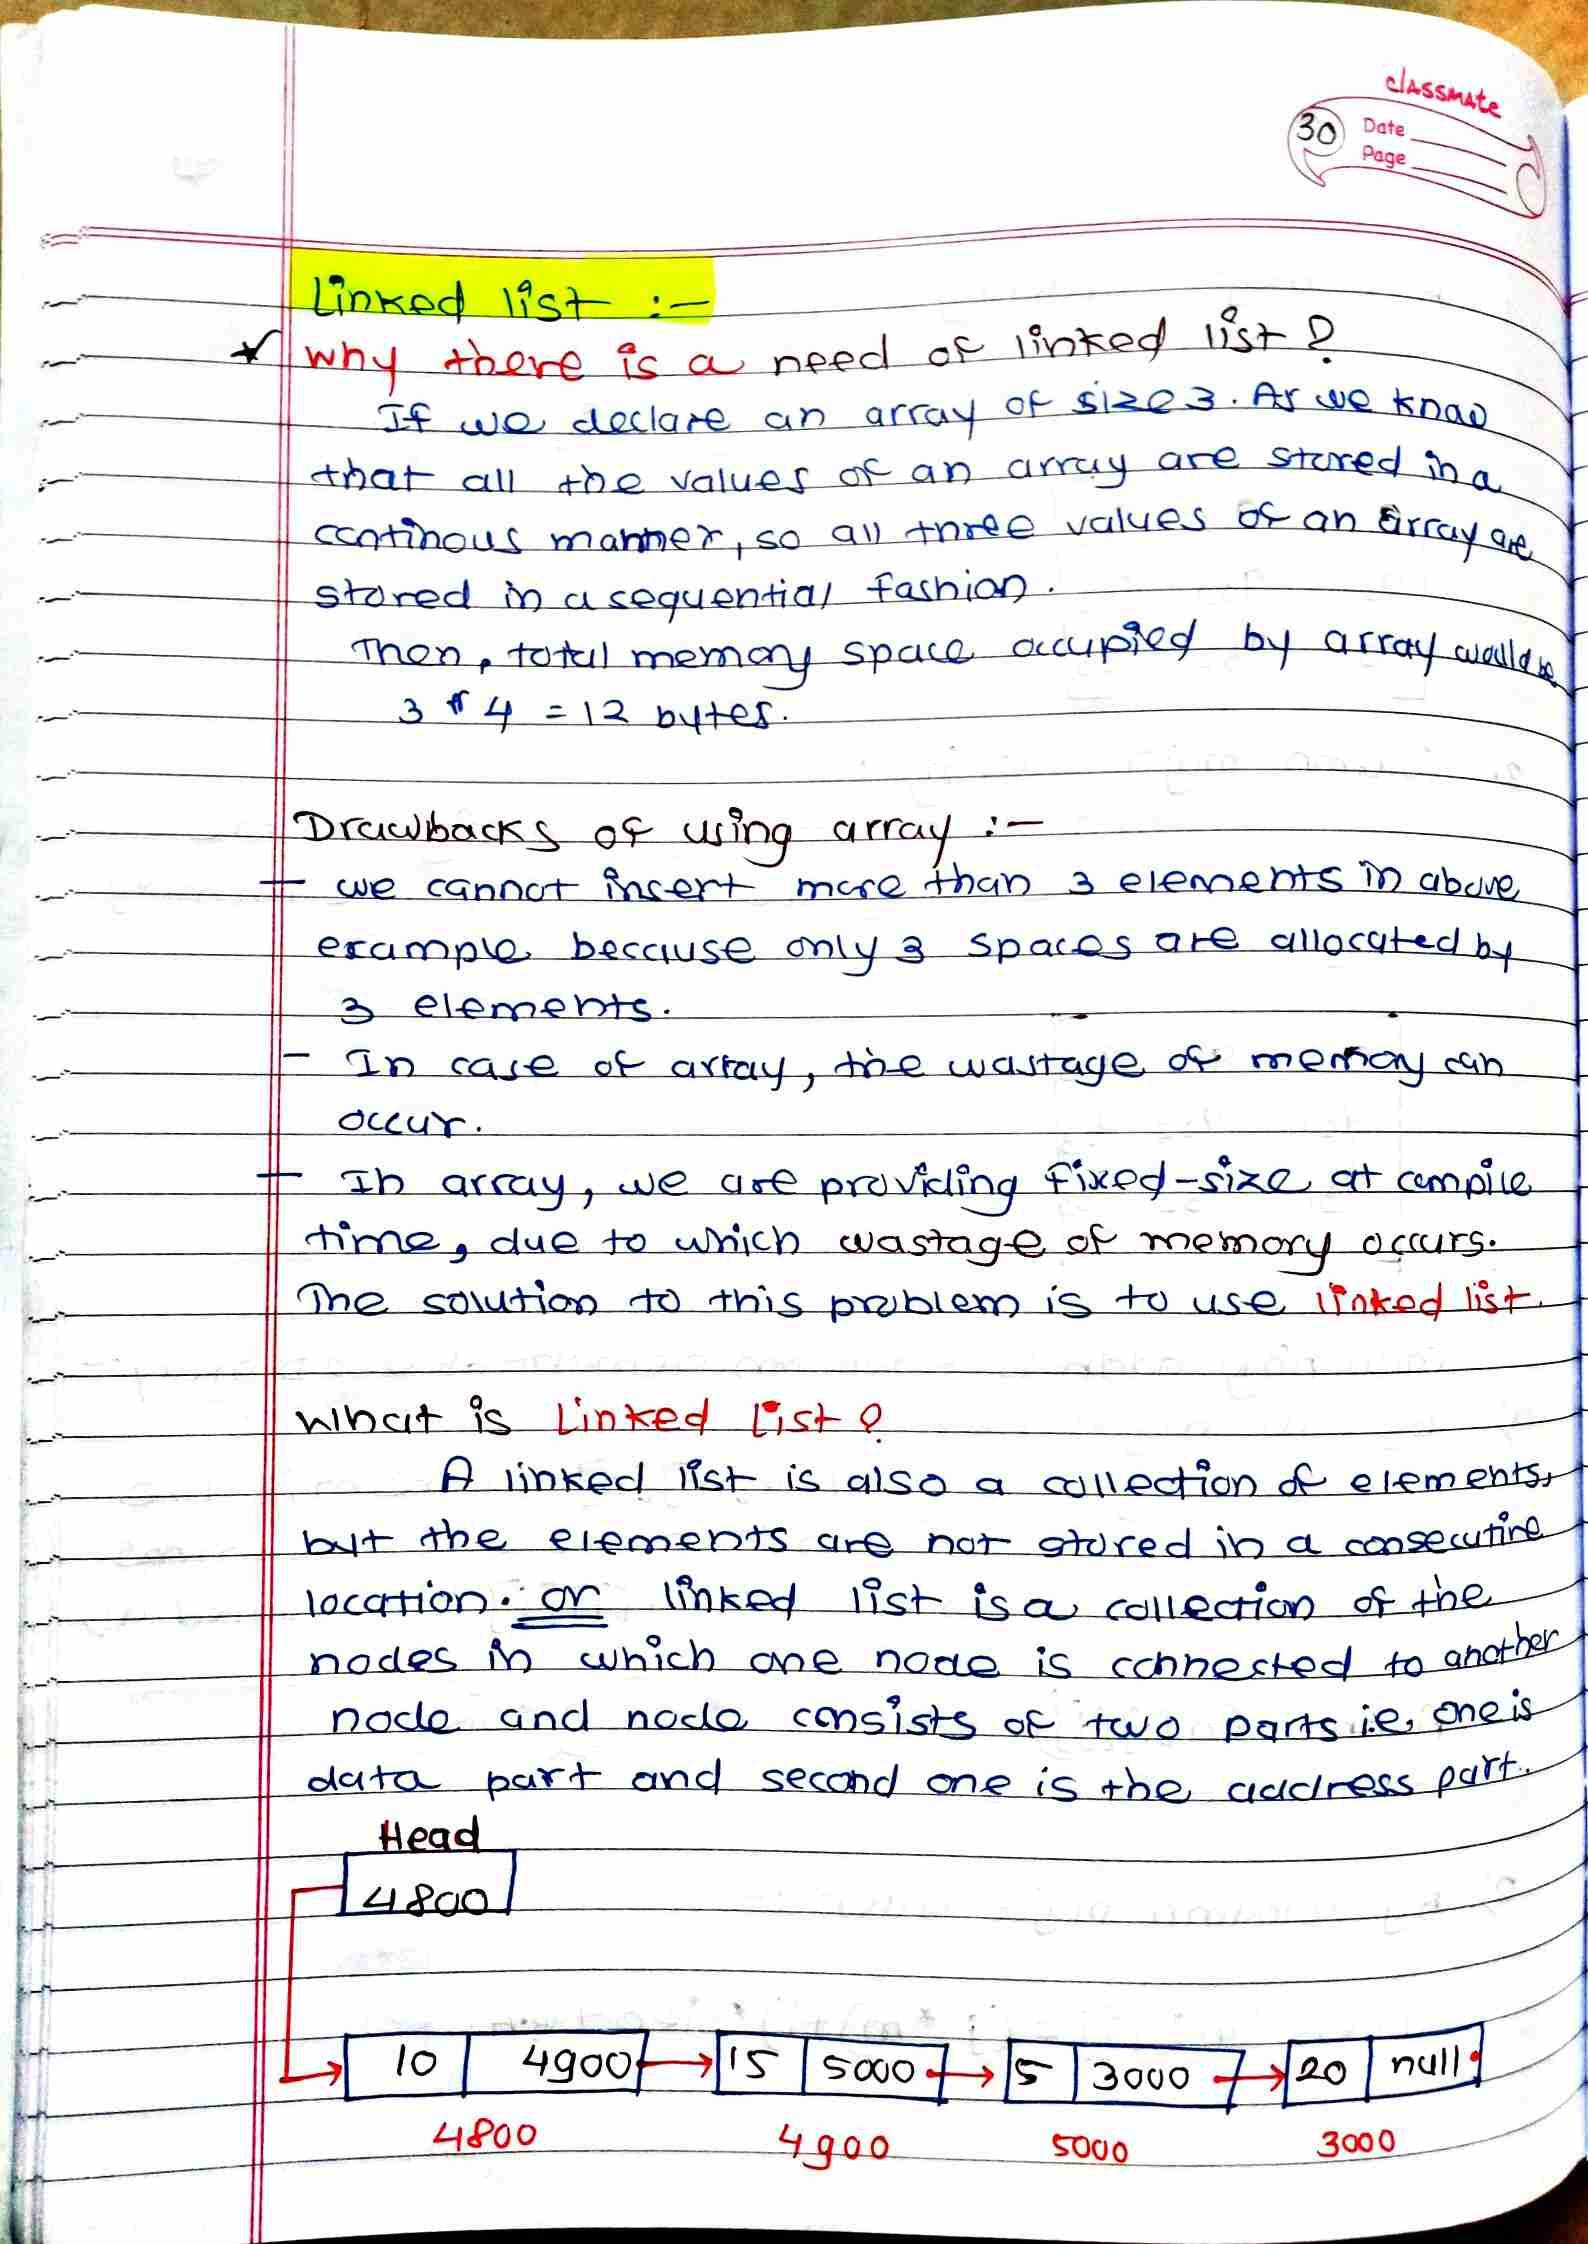 classmate
30 Date
Page
Linked list :-
why there is a need of linked list?
If we declare an array of size 3. As we know
that all the values of an array are stored in a
continous manner, so all three values of an array are
stored in a sequential fashion.
Then, total memory space occupied by array would be
3 * 4 = 12 bytes.
Drawbacks of using array :-
- we cannot insert more than 3 elements in above
example because only 3 spaces are allocated by
3 elements.
- In case of array, the wastage of memory can
occur.
- In array, we are providing fixed-size at compile
time, due to which wastage of memory occurs.
The solution to this problem is to use linked list.
What is Linked List?
A linked list is also a collection of elements,
but the elements are not stored in a consecutive
location. or linked list is a collection of the
nodes in which one node is connected to another
node and node consists of two parts i.e. one is
data part and second one is the address part.
Head
4800
10 4900 15 5000 5 3000 20 null
4800 4900 5000 3000